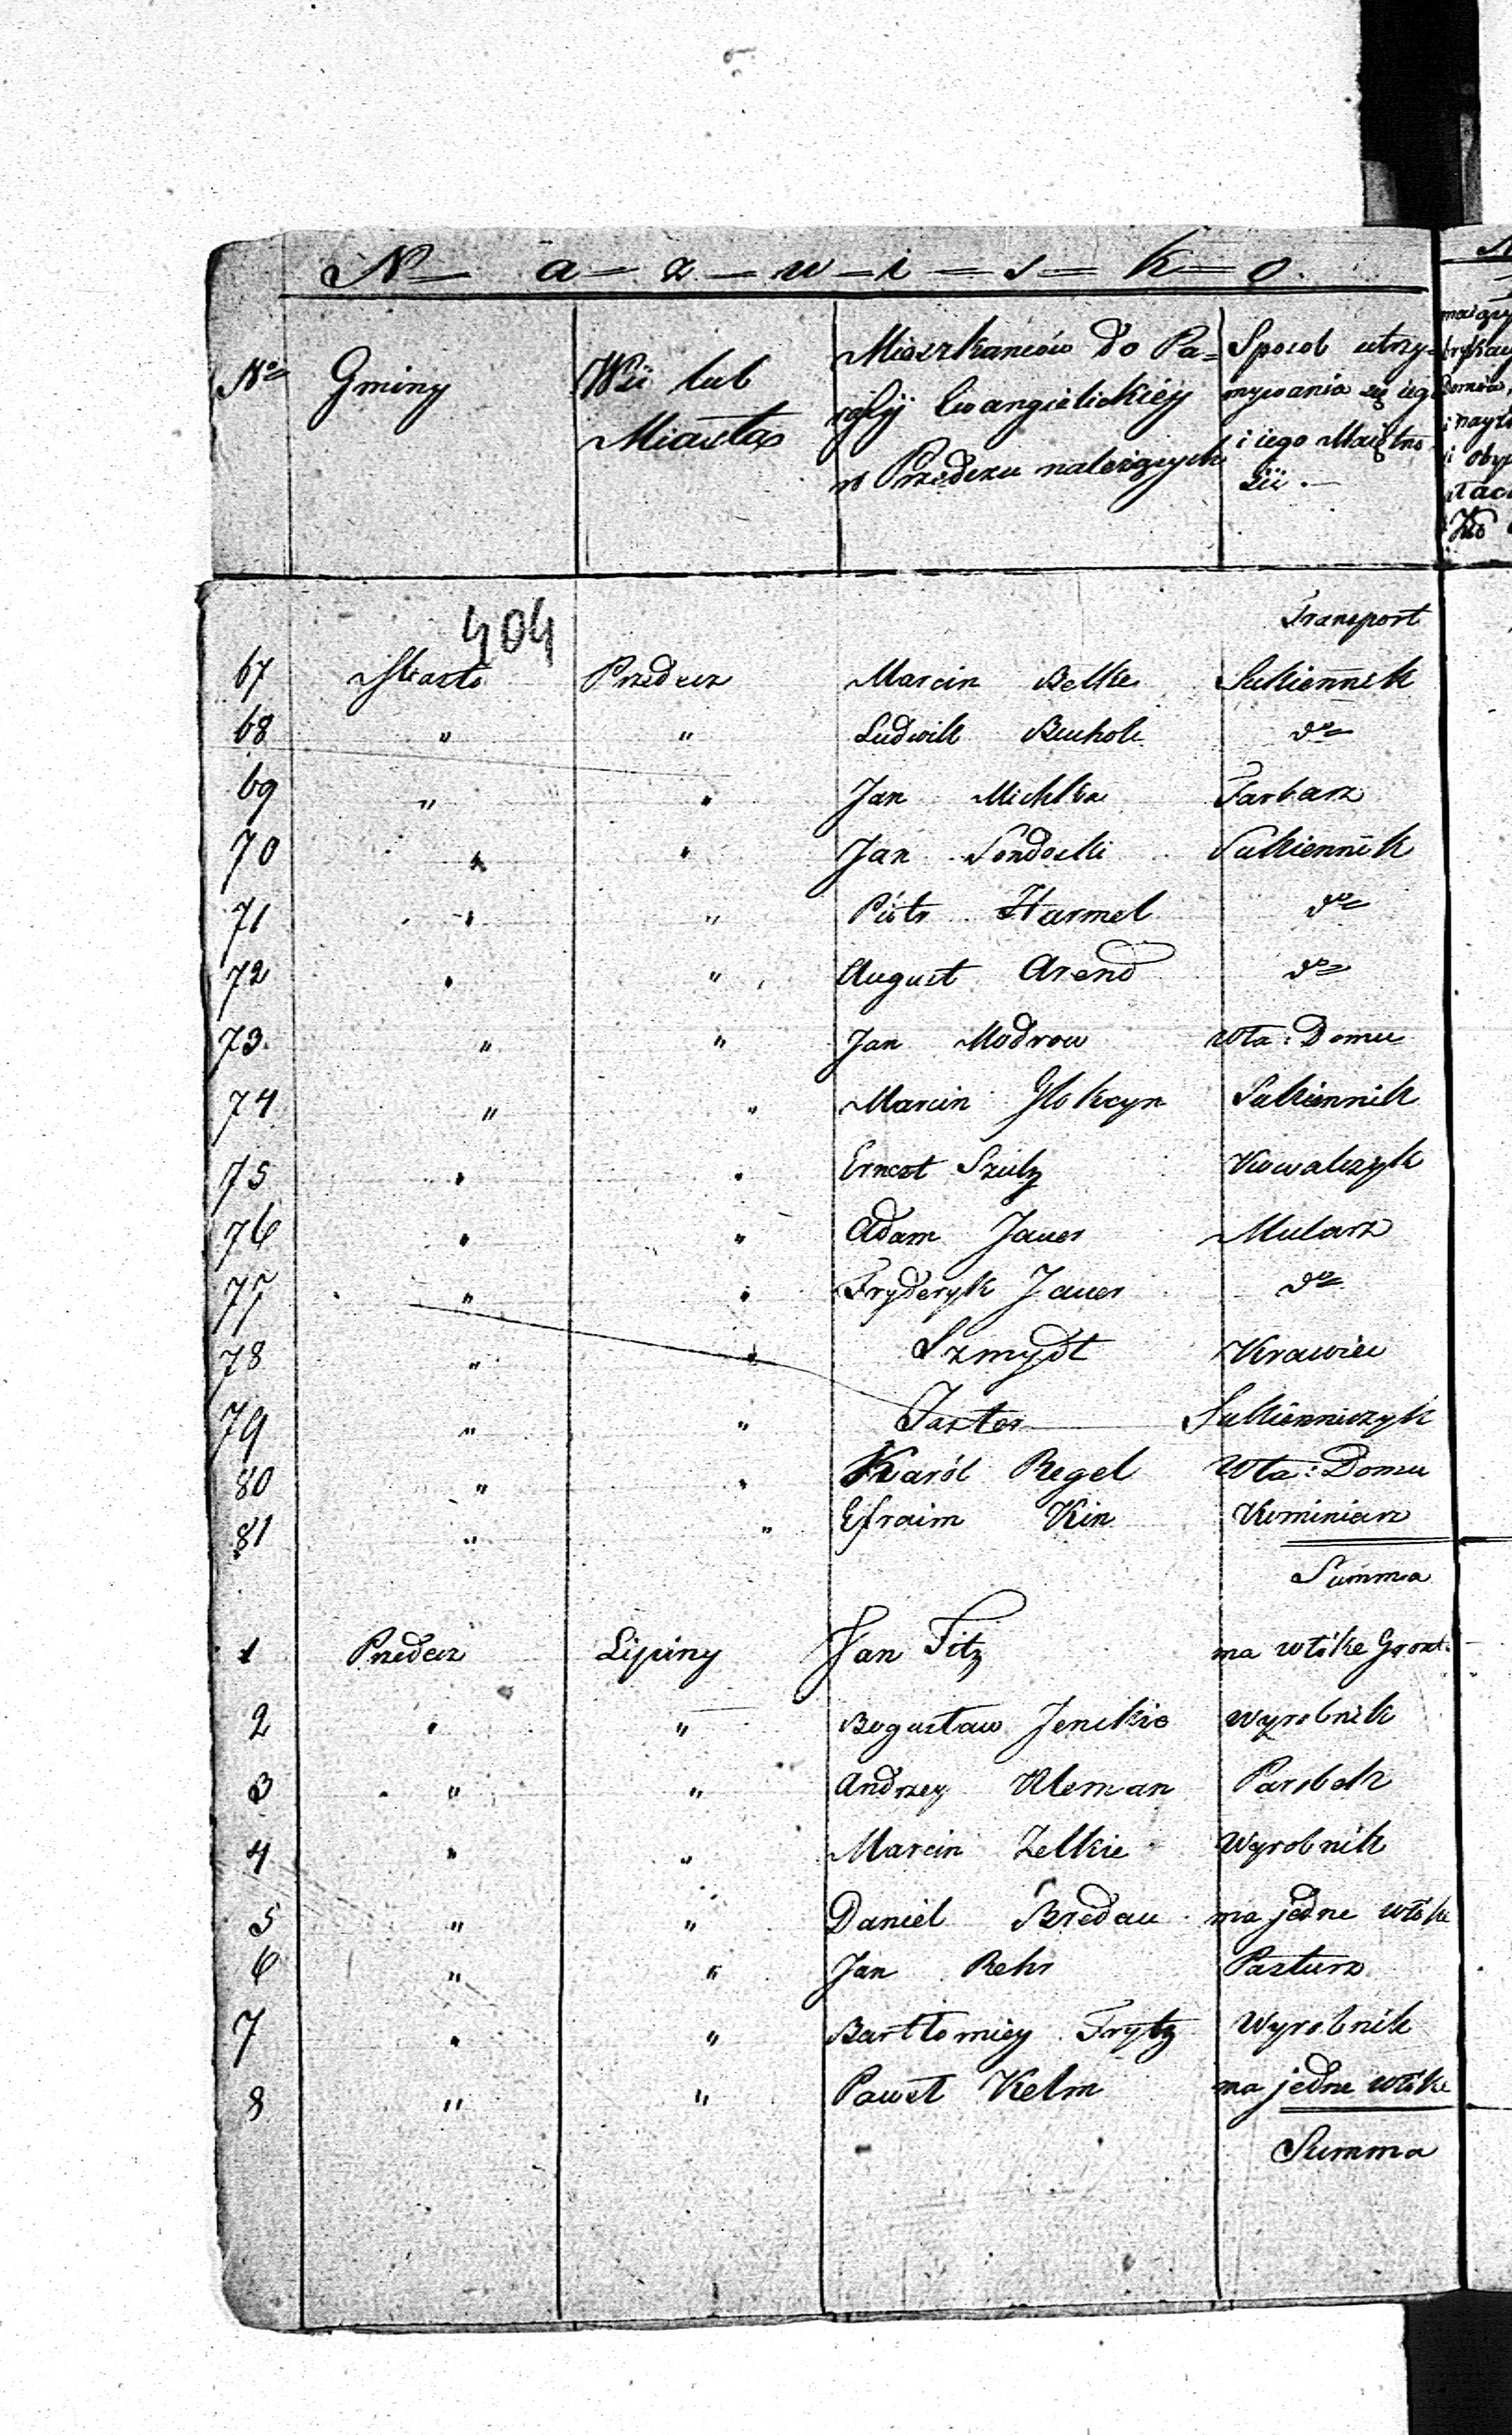 N – a – z – w – i – s – k – o.
No Gminy Wsi lub Miasta Mieszkanców do Pa= Sposob utrzy=
rafij Ewangielickiéy mywania się iego
w Przedczu należących i iego Maiętno=
ści.—
404 Transport
67 Miasto Przedecz Marcin Belke Sukiennik
68 " " Ludwik Bucholc do
69 " " Jan Michlka Farbarz
70 " " Jan Sondocki Sukiennik
71 " " Piotr Harmel do
72 " " August Arend do
73 " " Jan Modrow Wła: Domu
74 " " Marcin Sukiennik
75 " " Ernest Szulz Kowalczyk
76 " " Adam Jauer Mularz
77 " " Fryderyk Jauer do
78 " " Szmydt Krawiec
79 " " Jaster Sukienniczyk
80 " " Karól Regel Wła: Domu
81 " " Efraim Kin Kominiarz
Summa
1 Przedecz Lipiny Jan Fitz ma włóke Gront.
2 " " Bogusław Jenckie wyrobnik
3 " " Andrzey Kleman Parobek
4 " " Marcin Zelkie Wyrobnik
5 " " Daniel Bredau ma jedne włóke
6 " " Jan Rehr Pasturz
7 " " Bartłomiéy Frytz Wyrobnik
8 " " Paweł Kelm ma jedne włóke
Summa